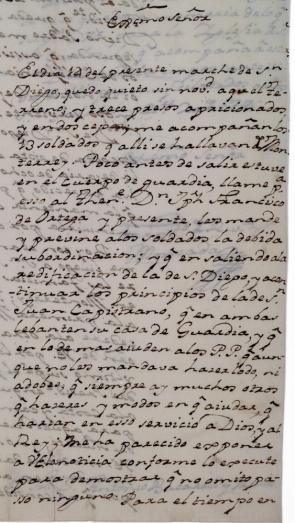 Exmo Señor
El dia 12 del presente marche de Sn
Diego, quedo quieto sin nov. aquel te
rreno, y trece presos apricionados
y en dos cepos, y me acompañan los
13 soldados q alli se hallavan Mon
terrey. Poco antes de salir estuve
en el Cuerpo de guardia, llame
esso al Then.e Dn Jph Francisco
de Ortega y presente, los mande
y previne a los soldados la debida
subordinacion; y q en saliendo a la
redificacion de la de Sn Diego, y a con
tinuar los principios de la de Sn
Juan Capistrano, q en ambas
lebanten su casa de Guardia y q
en lo demas aiuden a los P.P. q aun
que no les mandava hacer lodo, ni
adobes, q siempre ay muchos otros
q haseres y modos en q aiudar, q
harian en esso servicio a Dios, y al
Rey; y me ha parecido exponer
a V.E. la noticia conforme lo execute
para demostrar q no omito pa
sso ninguno. Para el tiempo en